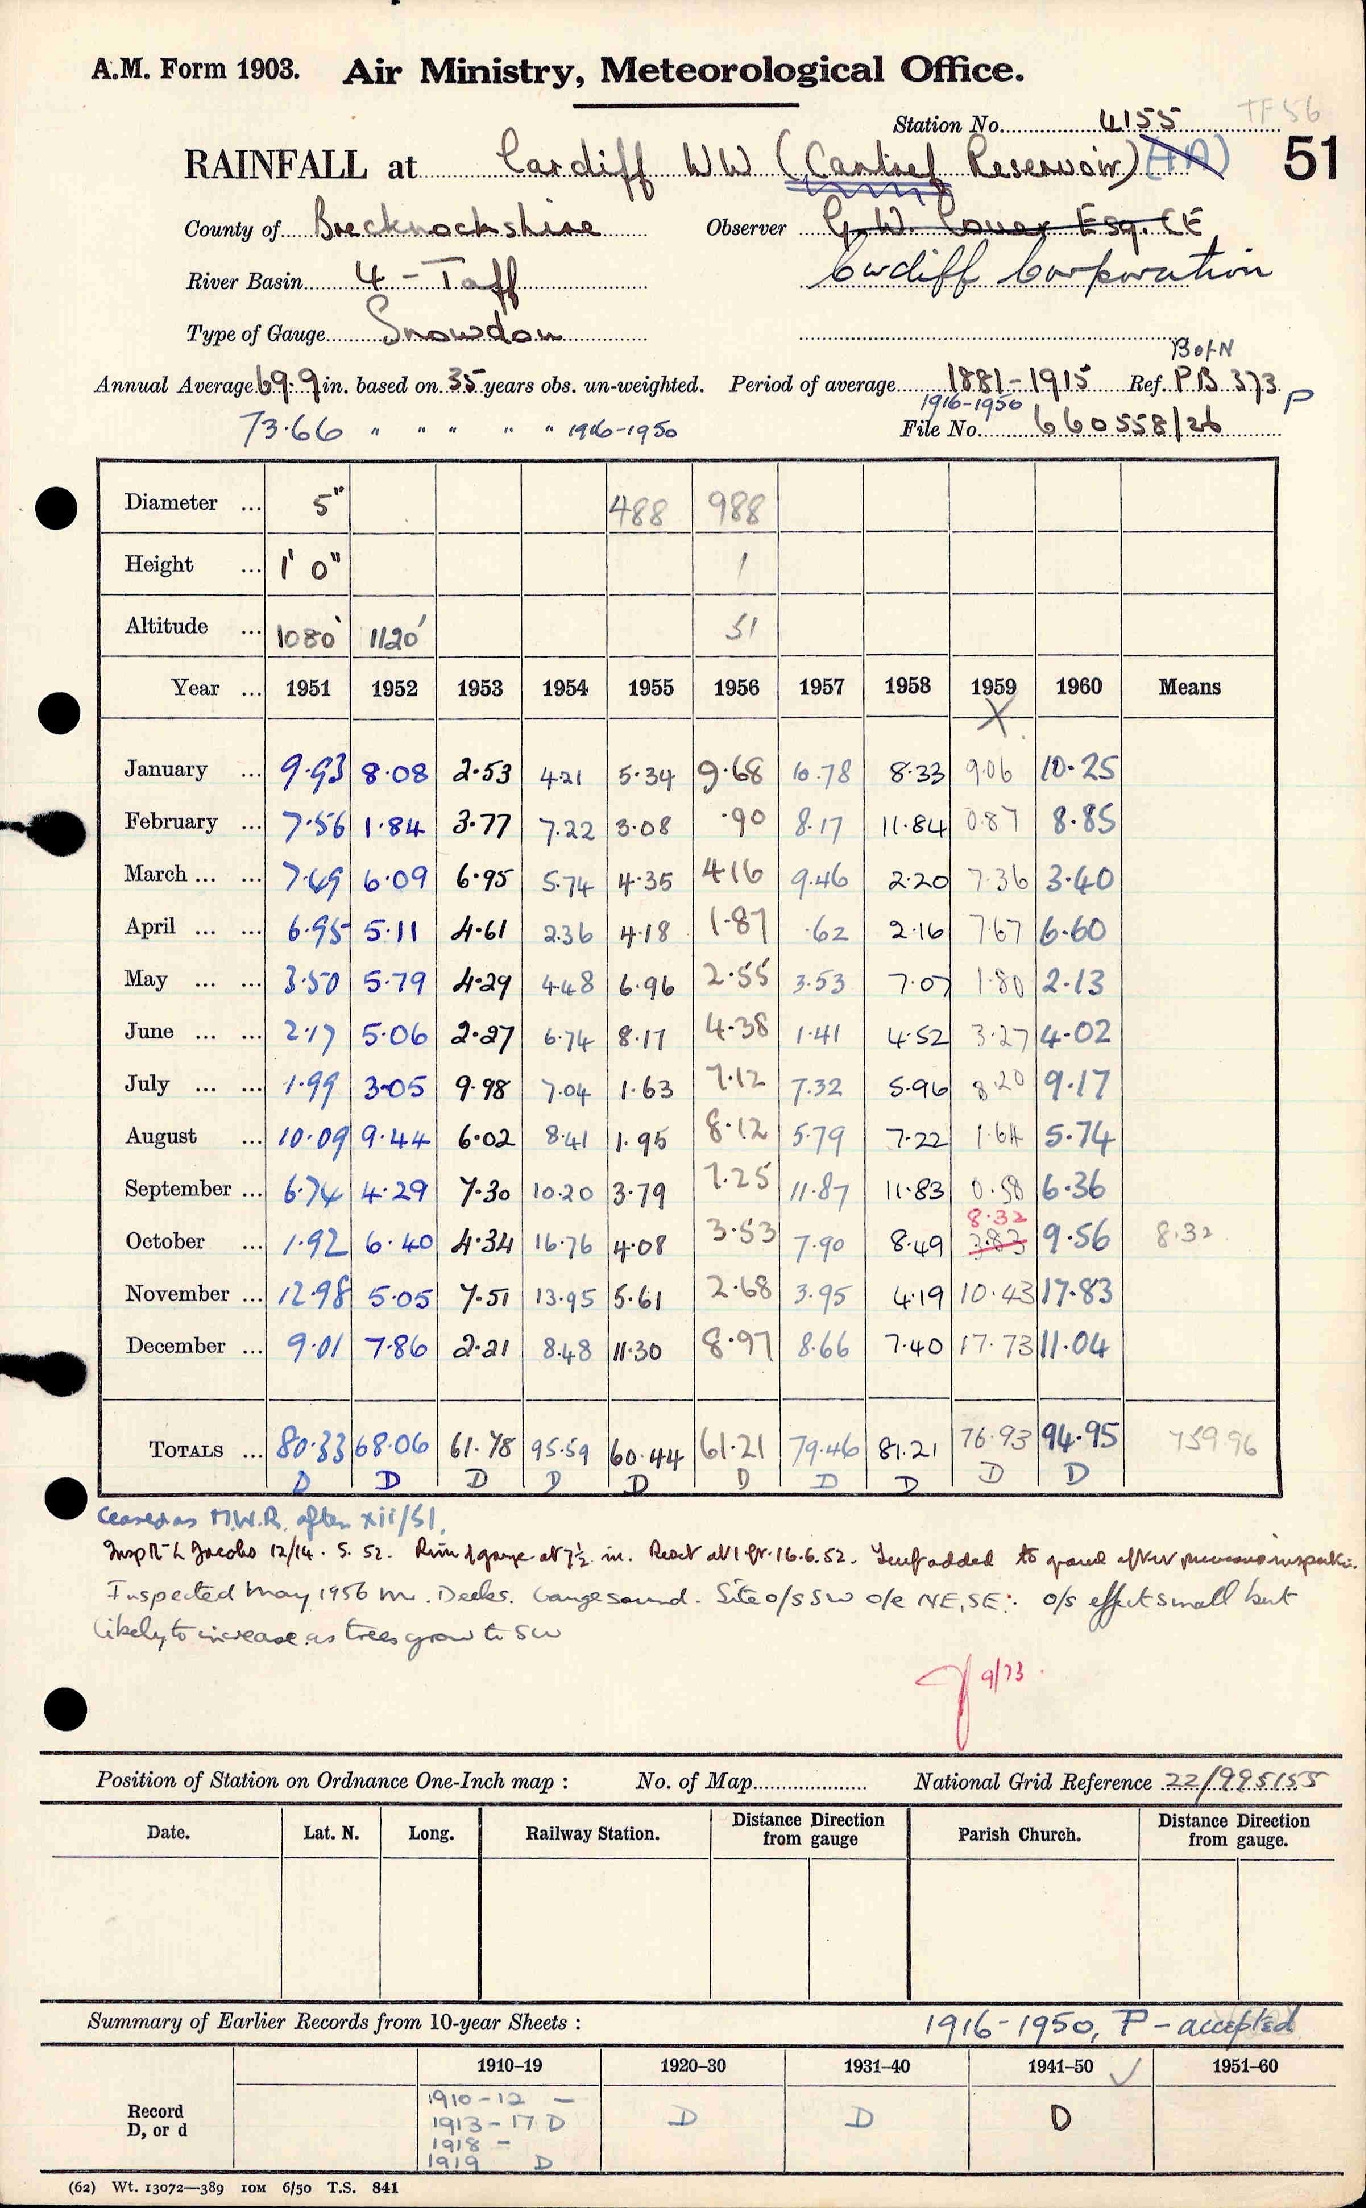 A.M. Form 1903. Air Ministry, Meteorological Office.
Station No. 4155 TF 56
RAINFALL at Cardiff WW (Cantref Reservoir) 51
County of Brecknockshire Observer G.W. Esq. CE
River Basin 4 - Taff Cardiff Corporation
Type of Gauge Snowdon
BofN
Annual Average 69.9 in. based on 35 years obs. un-weighted. Period of average 1881-1915 Ref. PB 373 P
1916-1950
73.66 " " " " " 1916-1950 File No. 660558/26
Diameter ... 5" 488 988
Height ... 1' 0" 1
Altitude ... 1080' 1120' 51
Year ... 1951 1952 1953 1954 1955 1956 1957 1958 1959 1960 Means
X
January ... 9.93 8.08 2.53 4.21 5.34 9.68 10.78 8.33 9.06 10.25
February ... 7.56 1.84 3.77 7.22 3.08 .90 8.17 11.84 0.87 8.85
March ... ... 7.49 6.09 6.95 5.74 4.35 4.16 9.46 2.20 7.36 3.40
April ... ... 6.95 5.11 4.61 2.36 4.18 1.87 .62 2.16 7.67 6.60
May ... ... 3.50 5.79 4.29 4.48 6.96 2.55 3.53 7.07 1.80 2.13
June ... ... 2.17 5.06 2.27 6.74 8.17 4.38 1.41 4.52 3.27 4.02
July ... ... 1.99 3.05 9.98 7.04 1.63 7.12 7.32 5.96 8.20 9.17
August ... 10.09 9.44 6.02 8.41 1.95 8.12 5.79 7.22 1.64 5.74
September ... 6.74 4.29 7.30 10.20 3.79 7.25 11.87 11.83 0.58 6.36
8.32
October ... 1.92 6.40 4.34 16.76 4.08 3.53 7.90 8.49 3.83 9.56 8.32
November ... 12.98 5.05 7.51 13.95 5.61 2.68 3.95 4.19 10.43 17.83
December ... 9.01 7.86 2.21 8.48 11.30 8.97 8.66 7.40 17.73 11.04
TOTALS ... 80.33 68.06 61.78 95.59 60.44 61.21 79.46 81.21 76.93 94.95 759.96
D D D D D D D D D D
Ceased as M.W.R. after xii/51.
Insp Mr L Jacobs 12/14. 5. 52. Rim of gauge at 7½ in. Reset at 1 ft. 16.6.52. Turf added to gravel after previous inspection.
Inspected May 1956 Mr. Deeks. Gauge sound. Site o/s SW o/e NE, SE: o/s effect small but
likely to increase as trees grow to SW
9/73
Position of Station on Ordnance One-Inch map : No. of Map National Grid Reference 22/995155
Date. Lat. N. Long. Railway Station. Distance from gauge Direction Parish Church. Distance from gauge. Direction
Summary of Earlier Records from 10-year Sheets : 1916-1950, P - accepted
1910-19 1920-30 1931-40 1941-50 ✓ 1951-60
Record D, or d
1910-12 -
1913-17 D D D D
1918 -
1919 D
(62) Wt. 13072—389 10M 6/50 T.S. 841